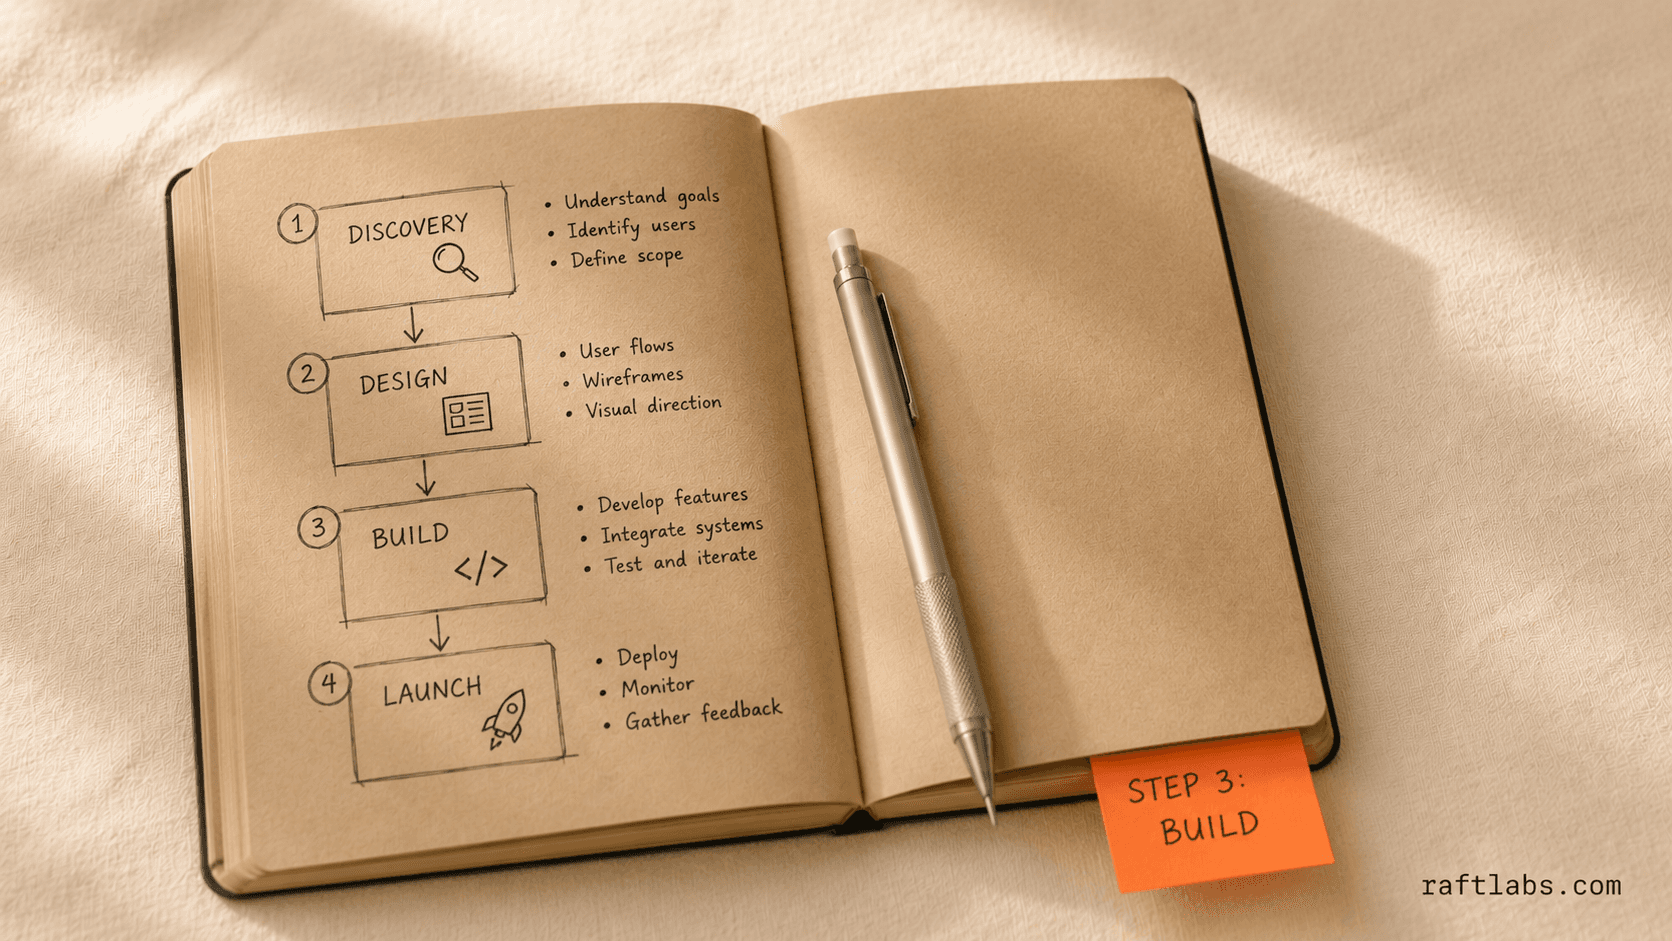 1
DISCOVERY
• Understand goals
• Identify users
• Define scope
2
DESIGN
• User flows
• Wireframes
• Visual direction
3
BUILD
</>
• Develop features
• Integrate systems
• Test and iterate
4
LAUNCH
• Deploy
• Monitor
• Gather feedback
STEP 3:
BUILD
raftlabs.com